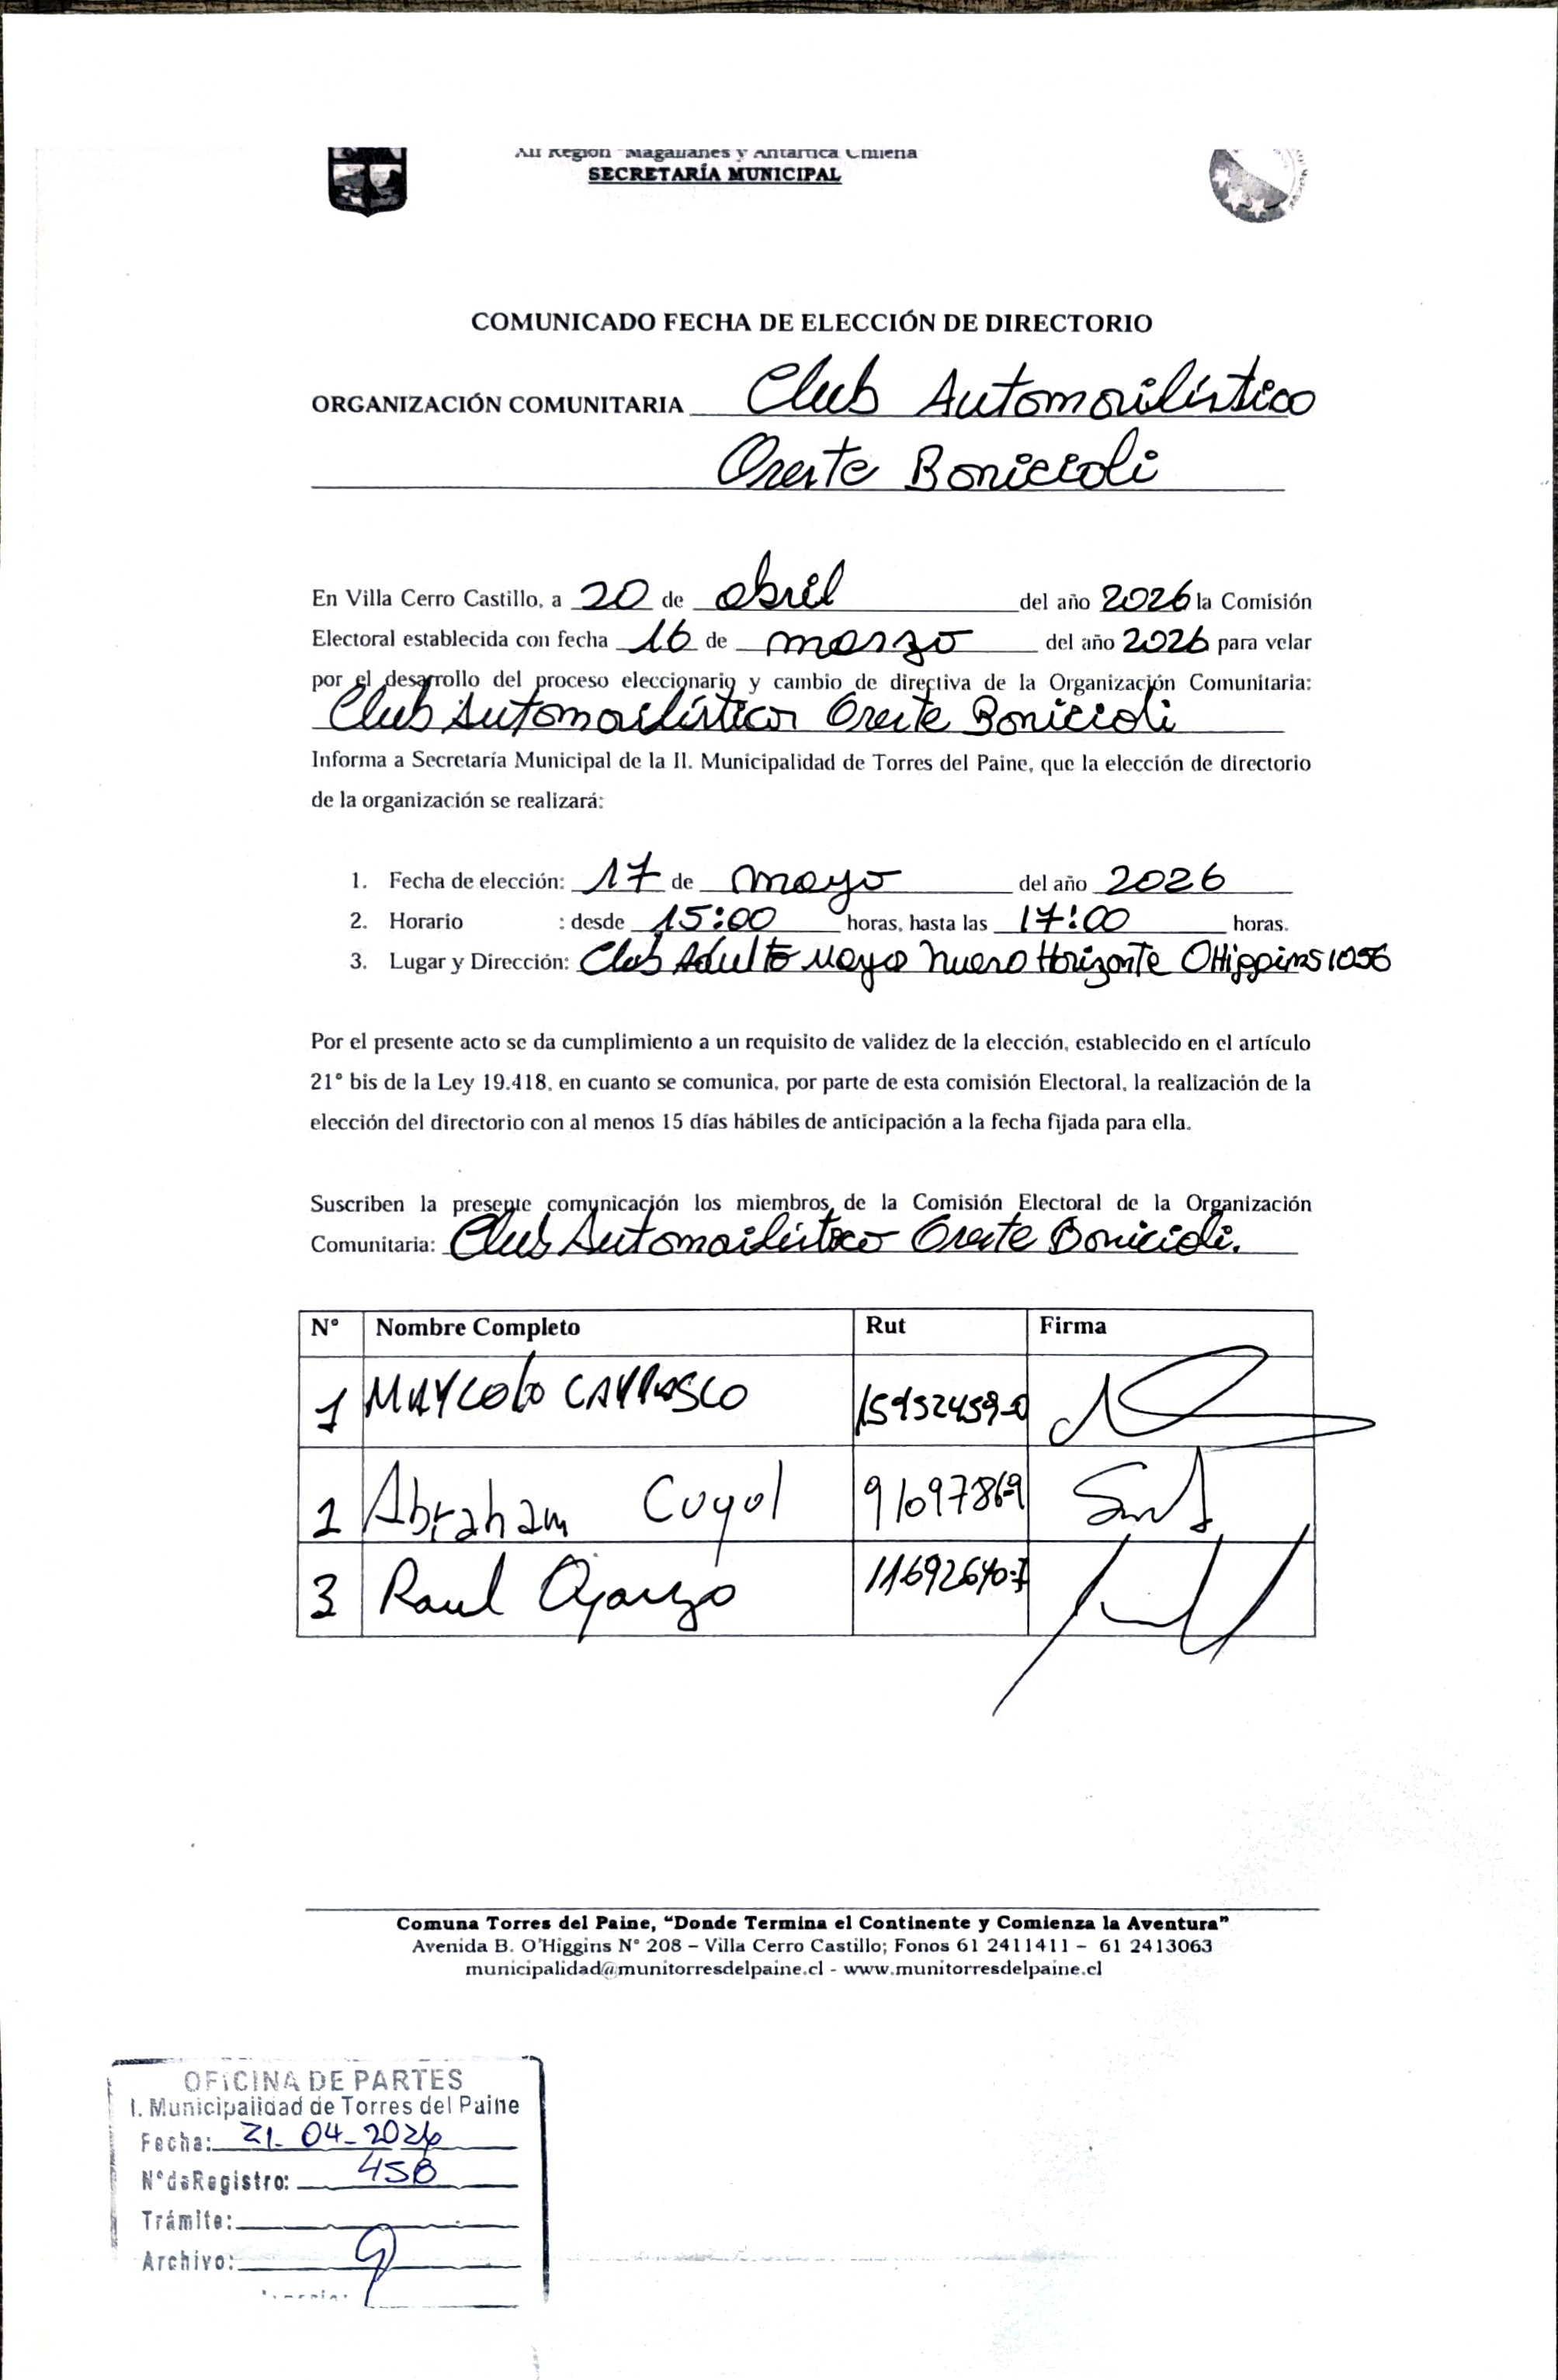 XII Región "Magallanes y Antártica Chilena
SECRETARÍA MUNICIPAL
COMUNICADO FECHA DE ELECCIÓN DE DIRECTORIO
ORGANIZACIÓN COMUNITARIA Club Automovilístico
Oreste Bonicioli
En Villa Cerro Castillo, a 20 de abril del año 2026 la Comisión
Electoral establecida con fecha 16 de marzo del año 2026 para velar
por el desarrollo del proceso eleccionario y cambio de directiva de la Organización Comunitaria:
Club Automovilístico Oreste Bonicioli
Informa a Secretaría Municipal de la Il. Municipalidad de Torres del Paine, que la elección de directorio
de la organización se realizará:
1. Fecha de elección: 17 de mayo del año 2026
2. Horario : desde 15:00 horas, hasta las 17:00 horas.
3. Lugar y Dirección: Club Adulto Mayor Nuevo Horizonte OHiggins 1056
Por el presente acto se da cumplimiento a un requisito de validez de la elección, establecido en el artículo
21° bis de la Ley 19.418, en cuanto se comunica, por parte de esta comisión Electoral, la realización de la
elección del directorio con al menos 15 días hábiles de anticipación a la fecha fijada para ella.
Suscriben la presente comunicación los miembros de la Comisión Electoral de la Organización
Comunitaria: Club Automovilístico Oreste Bonicioli.
N° Nombre Completo Rut Firma
1 MAYCOLO CARRASCO 15952459-0
2 Abraham Cuyul 9109786-9
3 Raul Oyarzo 11692640-7
Comuna Torres del Paine, "Donde Termina el Continente y Comienza la Aventura"
Avenida B. O'Higgins N° 208 – Villa Cerro Castillo; Fonos 61 2411411 – 61 2413063
municipalidad@munitorresdelpaine.cl - www.munitorresdelpaine.cl
OFICINA DE PARTES
I. Municipalidad de Torres del Paine
Fecha: 21-04-2026
N°deRegistro: 458
Trámite:
Archivo: